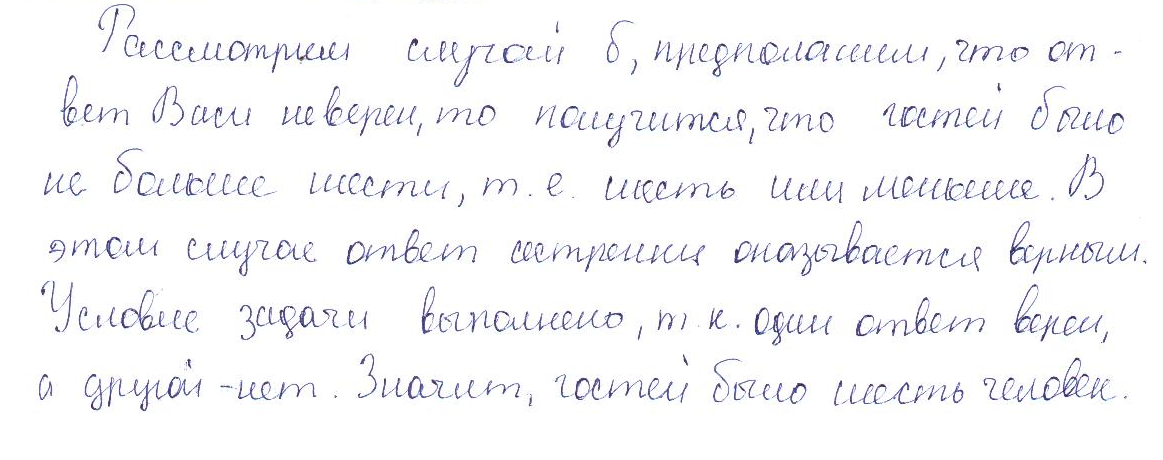 Рассмотрим случай б, предположим, что от-
вет Васи неверен, то получится, что гостей было
не больше шести, т.е. шесть или меньше. В
этом случае ответ сестренки оказывается верным.
Условие задачи выполнено, т.к. один ответ верен,
а другой - нет. Значит, гостей было шесть человек.